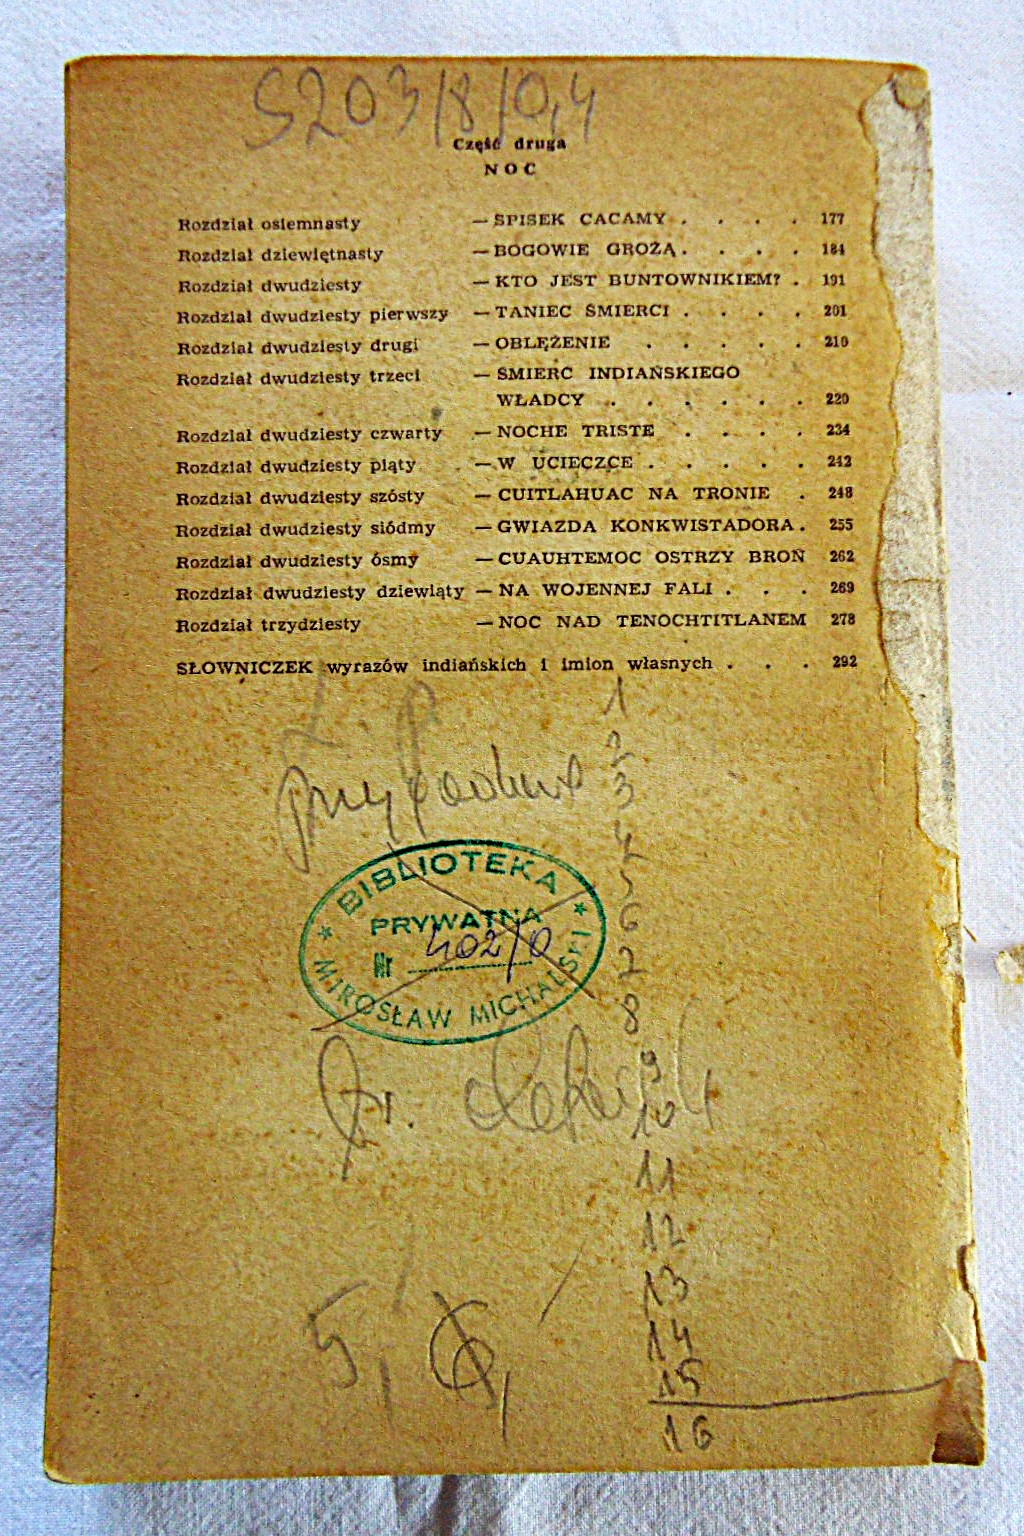 S203/8/0,4
Część druga
NOC
Rozdział osiemnasty — SPISEK CACAMY . . . . 177
Rozdział dziewiętnasty — BOGOWIE GROŻĄ . . . . 184
Rozdział dwudziesty — KTO JEST BUNTOWNIKIEM? . 191
Rozdział dwudziesty pierwszy — TANIEC ŚMIERCI . . . . 201
Rozdział dwudziesty drugi — OBLĘŻENIE . . . . . 210
Rozdział dwudziesty trzeci — ŚMIERĆ INDIAŃSKIEGO
WŁADCY . . . . . . 220
Rozdział dwudziesty czwarty — NOCHE TRISTE . . . . 234
Rozdział dwudziesty piąty — W UCIECZCE . . . . . 242
Rozdział dwudziesty szósty — CUITLAHUAC NA TRONIE . 248
Rozdział dwudziesty siódmy — GWIAZDA KONKWISTADORA . 255
Rozdział dwudziesty ósmy — CUAUHTEMOC OSTRZY BROŃ 262
Rozdział dwudziesty dziewiąty — NA WOJENNEJ FALI . . . 269
Rozdział trzydziesty — NOC NAD TENOCHTITLANEM 278
SŁOWNICZEK wyrazów indiańskich i imion własnych . . . 292
1
2
3
4
5
6
7
8
9
10
11
12
13
14
15
16
BIBLIOTEKA
PRYWATNA
Nr 402/0
MIROSŁAW MICHALSKI
5,